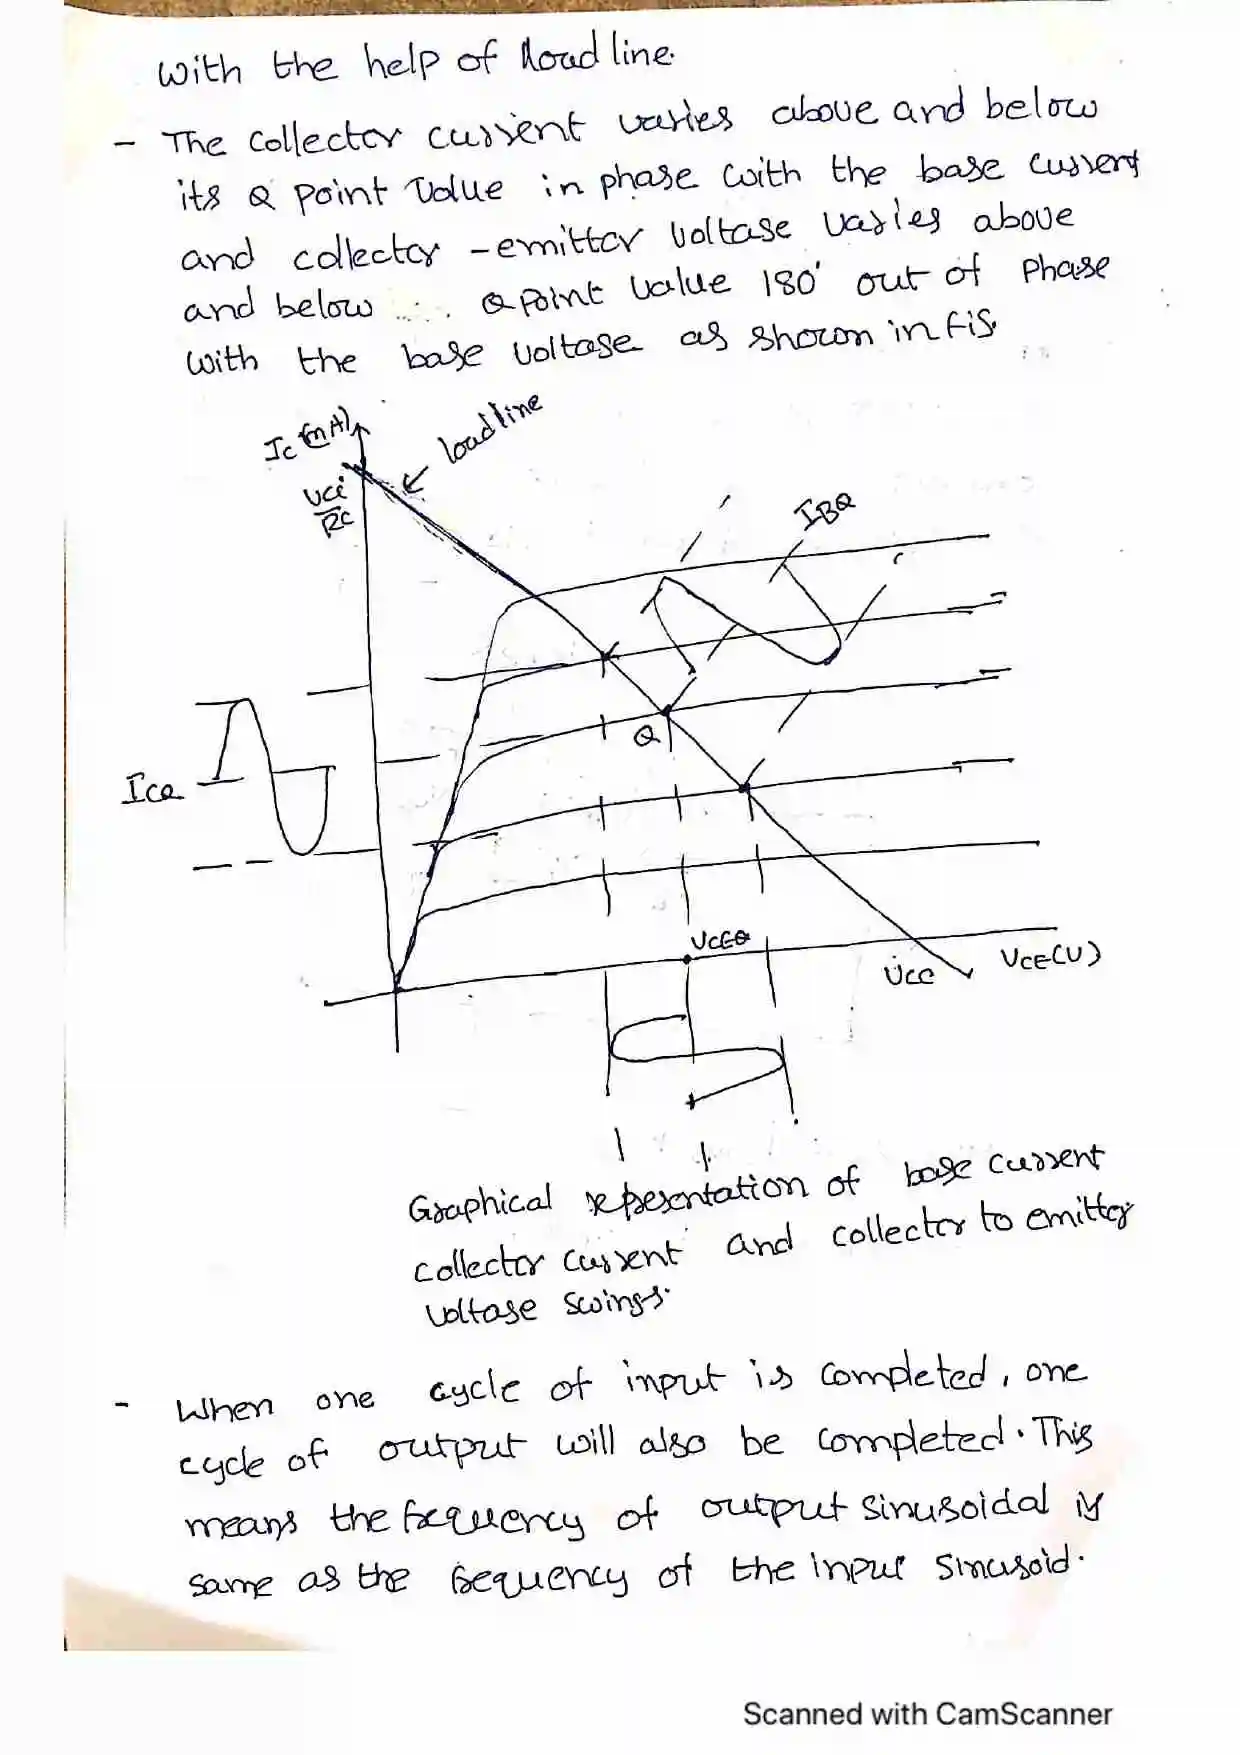 with the help of load line.
- The collector current varies above and below
its Q point value in phase with the base current
and collector - emitter voltage varies above
and below Q point value 180° out of phase
with the base voltage as shown in fig.
Ic (mA)
load line
Vcc
Rc
IBQ
Q
ICQ
VCEQ
VCC
VCE(V)
Graphical representation of base current
collector current and collector to emitter
voltage swings.
- When one cycle of input is completed, one
cycle of output will also be completed. This
means the frequency of output sinusoidal is
same as the frequency of the input sinusoid.
Scanned with CamScanner